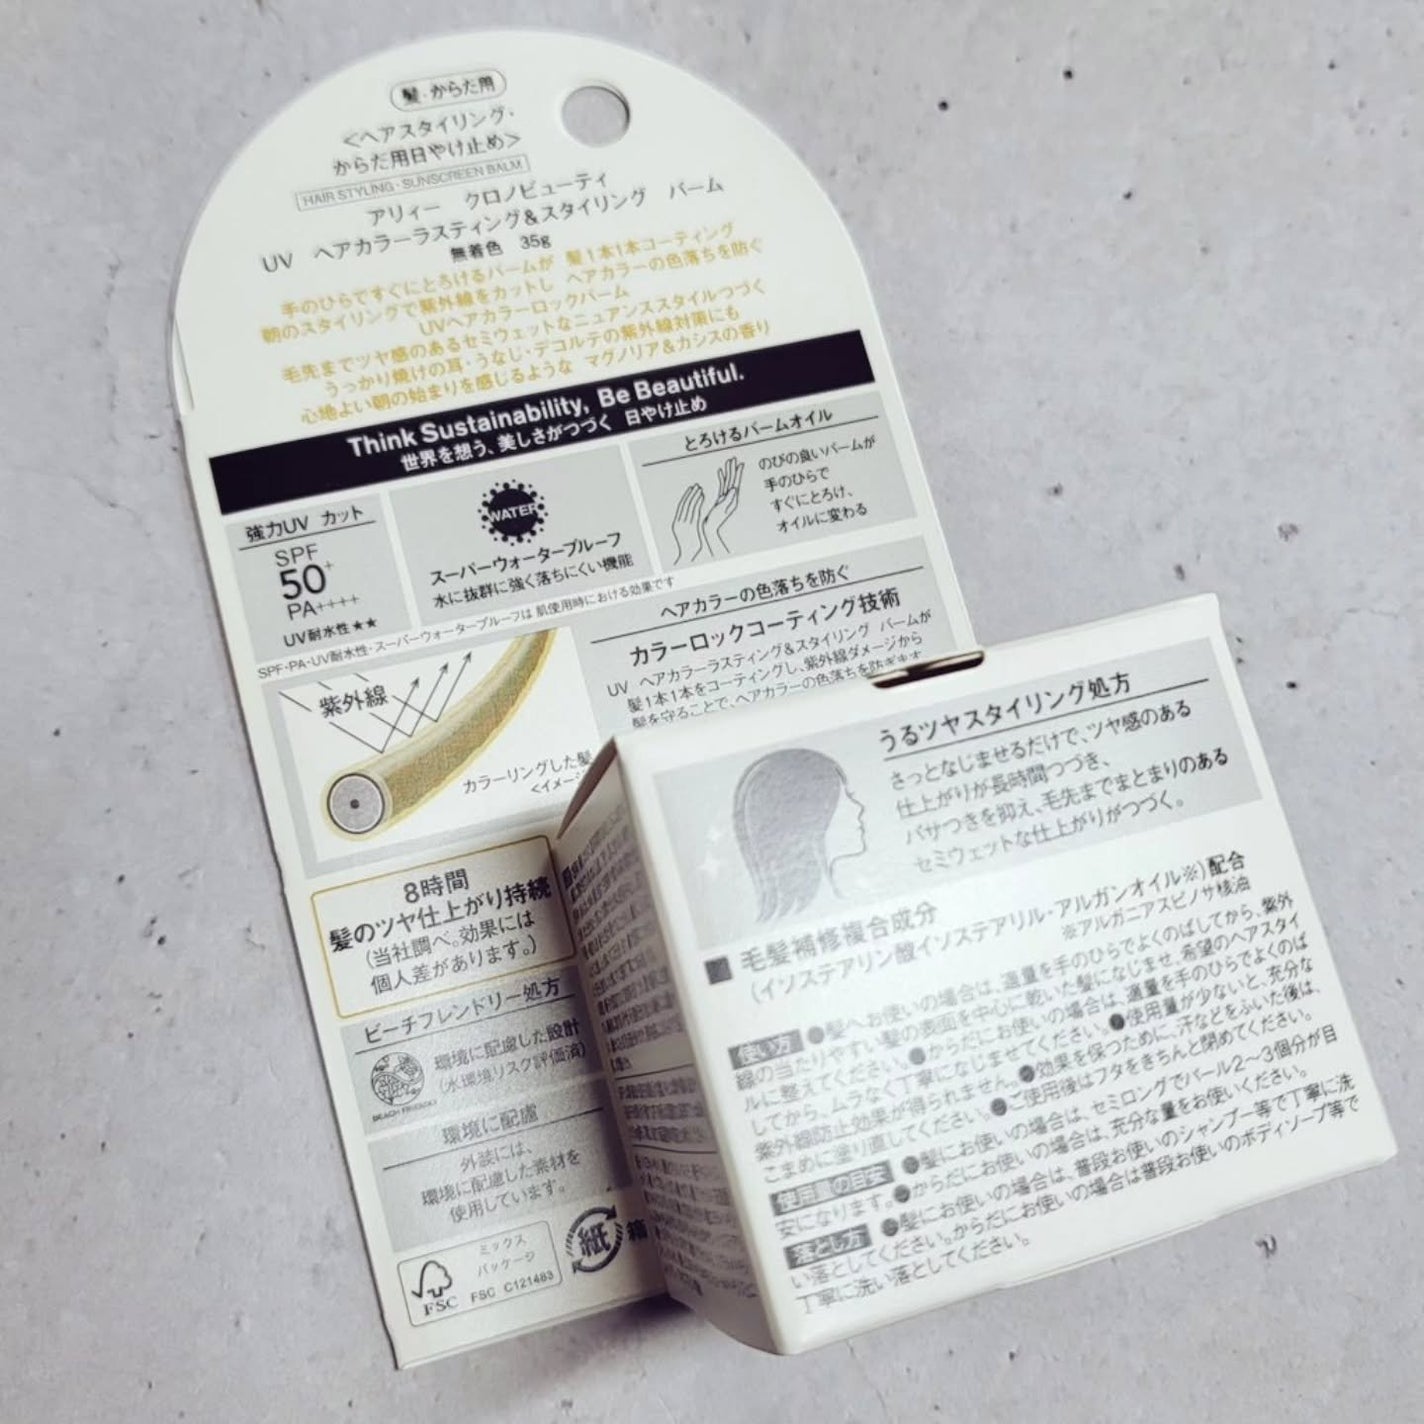 髪・からだ用
<ヘアスタイリング・
からだ用日やけ止め>
HAIR STYLING・SUNSCREEN BALM
アリィー クロノビューティ
UV ヘアカラーラスティング&スタイリング バーム
無着色 35g
手のひらですぐにとろけるバームが 髪1本1本コーティング
朝のスタイリングで紫外線をカットし ヘアカラーの色落ちを防ぐ
UVヘアカラーロックバーム
毛先までツヤ感のあるセミウェットなニュアンススタイルつづく
うっかり焼けの耳・うなじ・デコルテの紫外線対策にも
心地よい朝の始まりを感じるような マグノリア&カシスの香り
Think Sustainability, Be Beautiful.
世界を想う、美しさがつづく 日やけ止め
強力UV カット
SPF
50+
PA++++
UV耐水性★★
WATER
スーパーウォータープルーフ
水に抜群に強く落ちにくい機能
とろけるバームオイル
のびの良いバームが
手のひらで
すぐにとろけ、
オイルに変わる
SPF・PA・UV耐水性・スーパーウォータープルーフは 肌使用時における効果です
紫外線
カラーリングした髪
<イメージ
ヘアカラーの色落ちを防ぐ
カラーロックコーティング技術
UV ヘアカラーラスティング&スタイリング バームが
髪1本1本をコーティングし、紫外線ダメージから
髪を守ることで、ヘアカラーの色落ちを防ぎます
8時間
髪のツヤ仕上がり持続
(当社調べ。効果には
個人差があります。)
ビーチフレンドリー処方
BEACH FRIENDLY
環境に配慮した設計
(水環境リスク評価済)
環境に配慮
外装には、
環境に配慮した素材を
使用しています。
FSC
ミックス
パッケージ
FSC C121483
紙
箱
うるツヤスタイリング処方
さっとなじませるだけで、ツヤ感のある
仕上がりが長時間つづき、
パサつきを抑え、毛先までまとまりのある
セミウェットな仕上がりがつづく。
■毛髪補修複合成分
(イソステアリン酸イソステアリル・アルガンオイル※)配合
※アルガニアスピノサ核油
使い方 ●髪へお使いの場合は、適量を手のひらでよくのばしてから、紫外
線の当たりやすい髪の表面を中心に乾いた髪になじませ、希望のヘアスタイ
ルに整えてください。●からだにお使いの場合は、適量を手のひらでよくのば
してから、ムラなく丁寧になじませてください。●使用量が少ないと、充分な
紫外線防止効果が得られません。●効果を保つために、汗などをふいた後は、
こまめに塗り直してください。●ご使用後はフタをきちんと閉めてください。
使用量の目安 ●髪にお使いの場合は、セミロングでパール2〜3個分が目
安になります。●からだにお使いの場合は、充分な量をお使いください。
落とし方 ●髪にお使いの場合は、普段お使いのシャンプー等で丁寧に洗
い落としてください。からだにお使いの場合は普段お使いのボディソープ等で
丁寧に洗い落としてください。